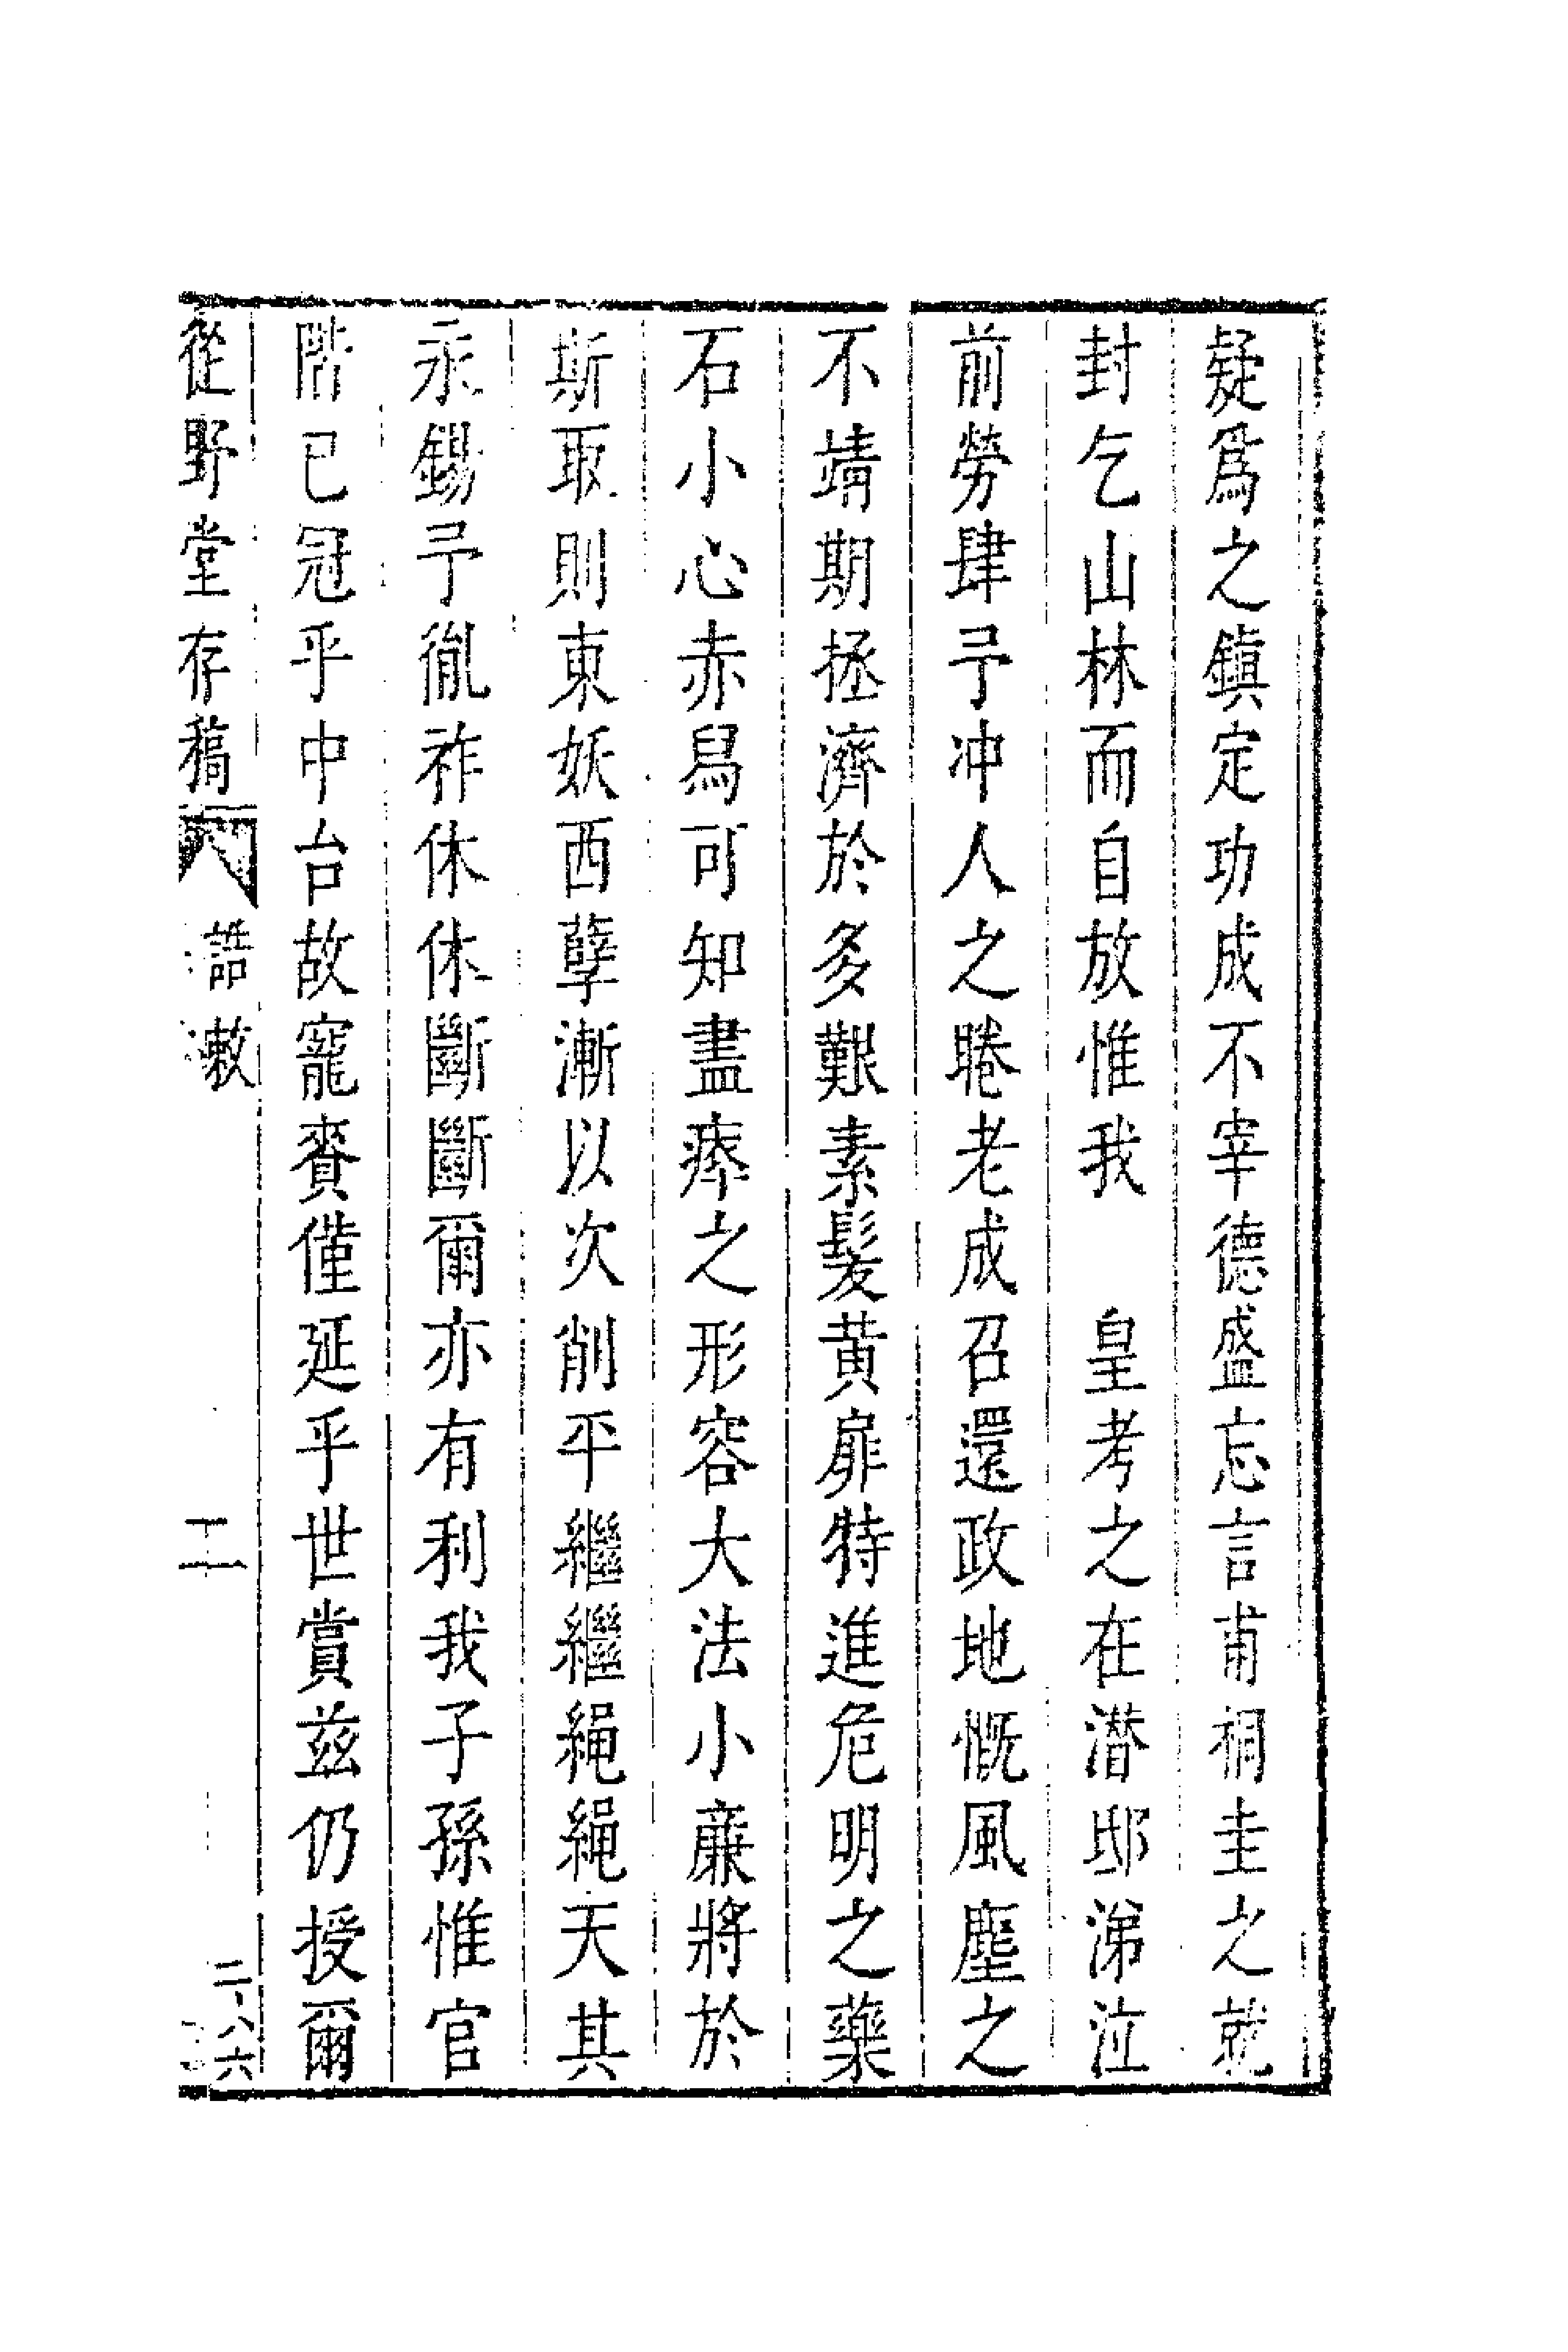 疑爲之鎮定功成不宰德盛忘言甫桐圭之就
封乞山林而自放惟我　皇考之在潛邸涕泣
前勞肆予冲人之睠老成召還政地慨風塵之
不靖期拯濟於多艱素髮黃扉特進危明之藥
石小心赤舄可知盡瘁之形容大法小廉將於
斯取則東妖西孽漸以次削平繼繼繩繩天其
永錫予胤祚休休斷斷爾亦有利我子孫惟官
階已冠乎中台故寵賚僅延乎世賞茲仍授爾
從野堂存稿　誥敕　二
二、八六